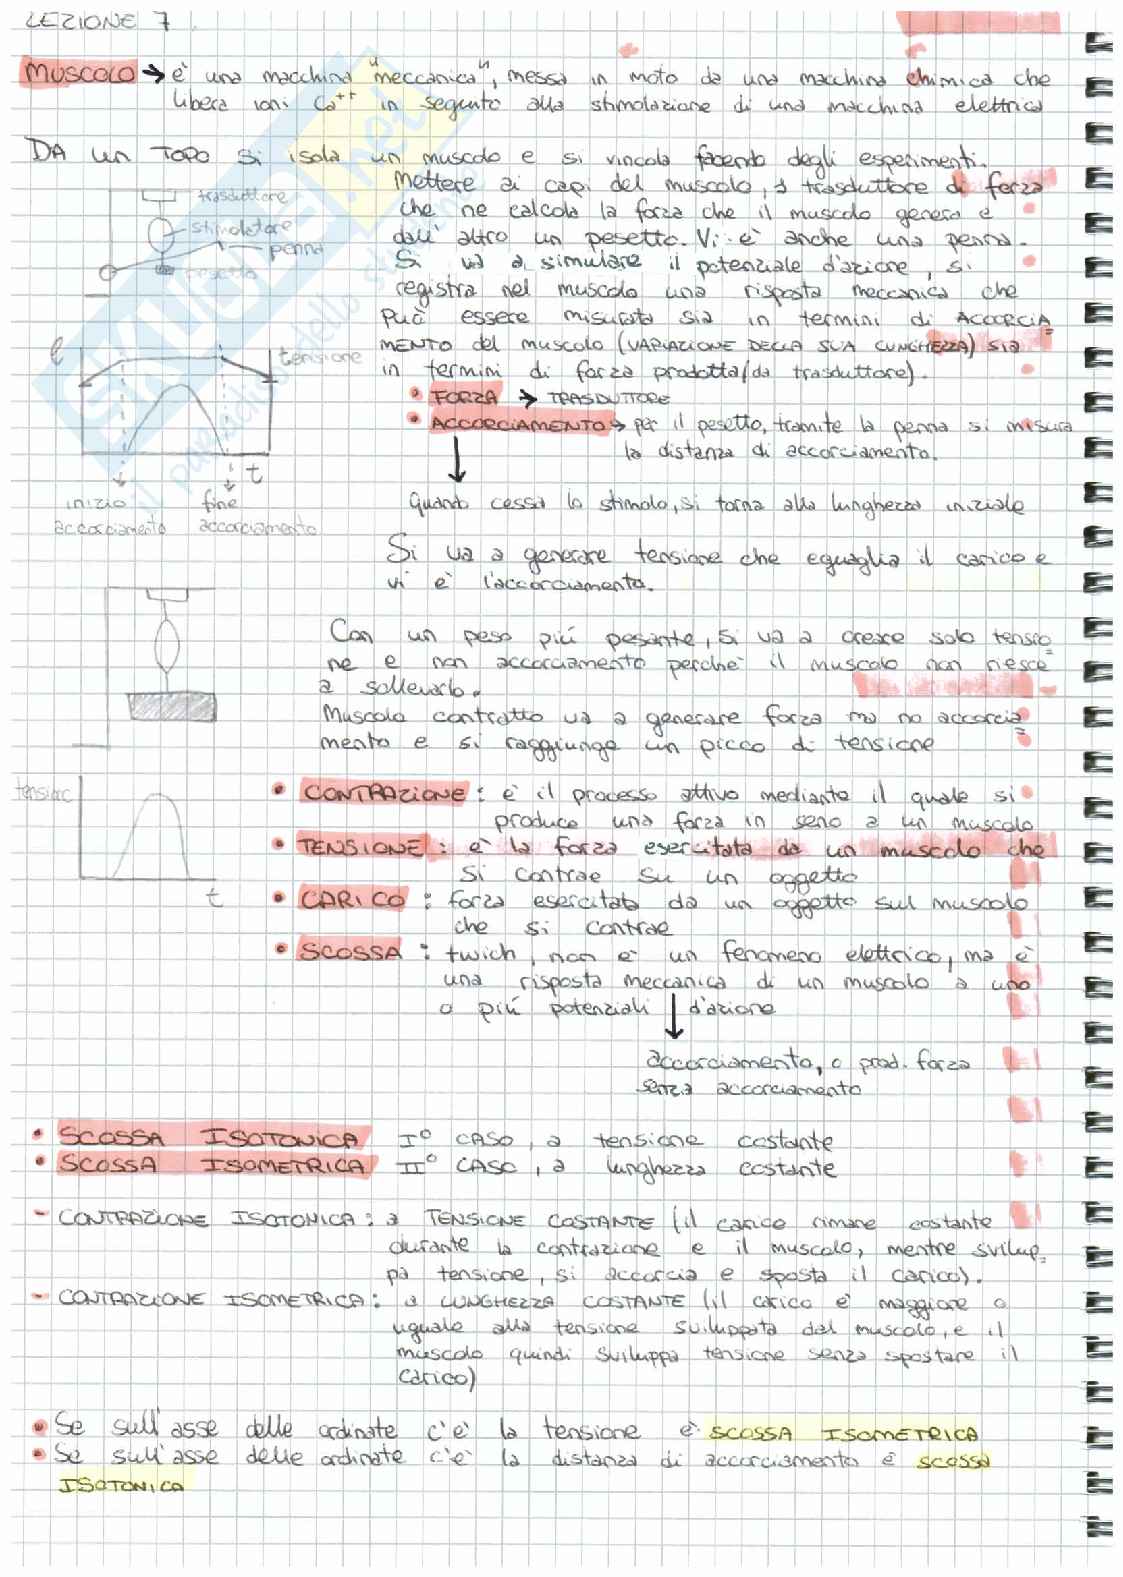 LEZIONE 7
MUSCOLO → è una macchina "meccanica", messa in moto da una macchina chimica che
libera ioni Ca++ in seguito alla stimolazione di una macchina elettrica
DA UN TOPO si isola un muscolo e si vincola facendo degli esperimenti.
Mettere ai capi del muscolo, 1 trasduttore di forza
che ne calcola la forza che il muscolo genera e
dall'altro un pesetto. Vi è anche una penna.
Si va a simulare il potenziale d'azione, si
registra nel muscolo una risposta meccanica che
può essere misurata sia in termini di ACCORCIA=
MENTO del muscolo (VARIAZIONE DELLA SUA LUNGHEZZA) sia
in termini di forza prodotta (da trasduttore).
trasduttore
stimolatore
penna
pesetto
• FORZA → TRASDUTTORE
• ACCORCIAMENTO → per il pesetto, tramite la penna si misura
la distanza di accorciamento.
l
tensione
t
inizio accorciamento
fine accorciamento
Quando cessa lo stimolo, si torna alla lunghezza iniziale
Si va a generare tensione che eguaglia il carico e
vi è l'accorciamento.
Con un peso più pesante, si va a creare solo tensio=
ne e non accorciamento perchè il muscolo non riesce
a sollevarlo.
Muscolo contratto va a generare forza ma no accorcia=
mento e si raggiunge un picco di tensione
tensione
t
• CONTRAZIONE: è il processo attivo mediante il quale si
produce una forza in seno a un muscolo
• TENSIONE: è la forza esercitata da un muscolo che
si contrae su un oggetto
• CARICO: forza esercitata da un oggetto sul muscolo
che si contrae
• SCOSSA: twich, non è un fenomeno elettrico, ma è
una risposta meccanica di un muscolo a uno
o più potenziali d'azione
accorciamento, o prod. forza
senza accorciamento
• SCOSSA ISOTONICA I° CASO, a tensione costante
• SCOSSA ISOMETRICA II° CASO, a lunghezza costante
- CONTRAZIONE ISOTONICA: a TENSIONE COSTANTE (il carico rimane costante
durante la contrazione e il muscolo, mentre svilup=
pa tensione, si accorcia e sposta il carico).
- CONTRAZIONE ISOMETRICA: a LUNGHEZZA COSTANTE (il carico è maggiore o
uguale alla tensione sviluppata dal muscolo, e il
muscolo quindi sviluppa tensione senza spostare il
carico)
• Se sull'asse delle ordinate c'è la tensione è SCOSSA ISOMETRICA
• Se sull'asse delle ordinate c'è la distanza di accorciamento è SCOSSA
ISOTONICA